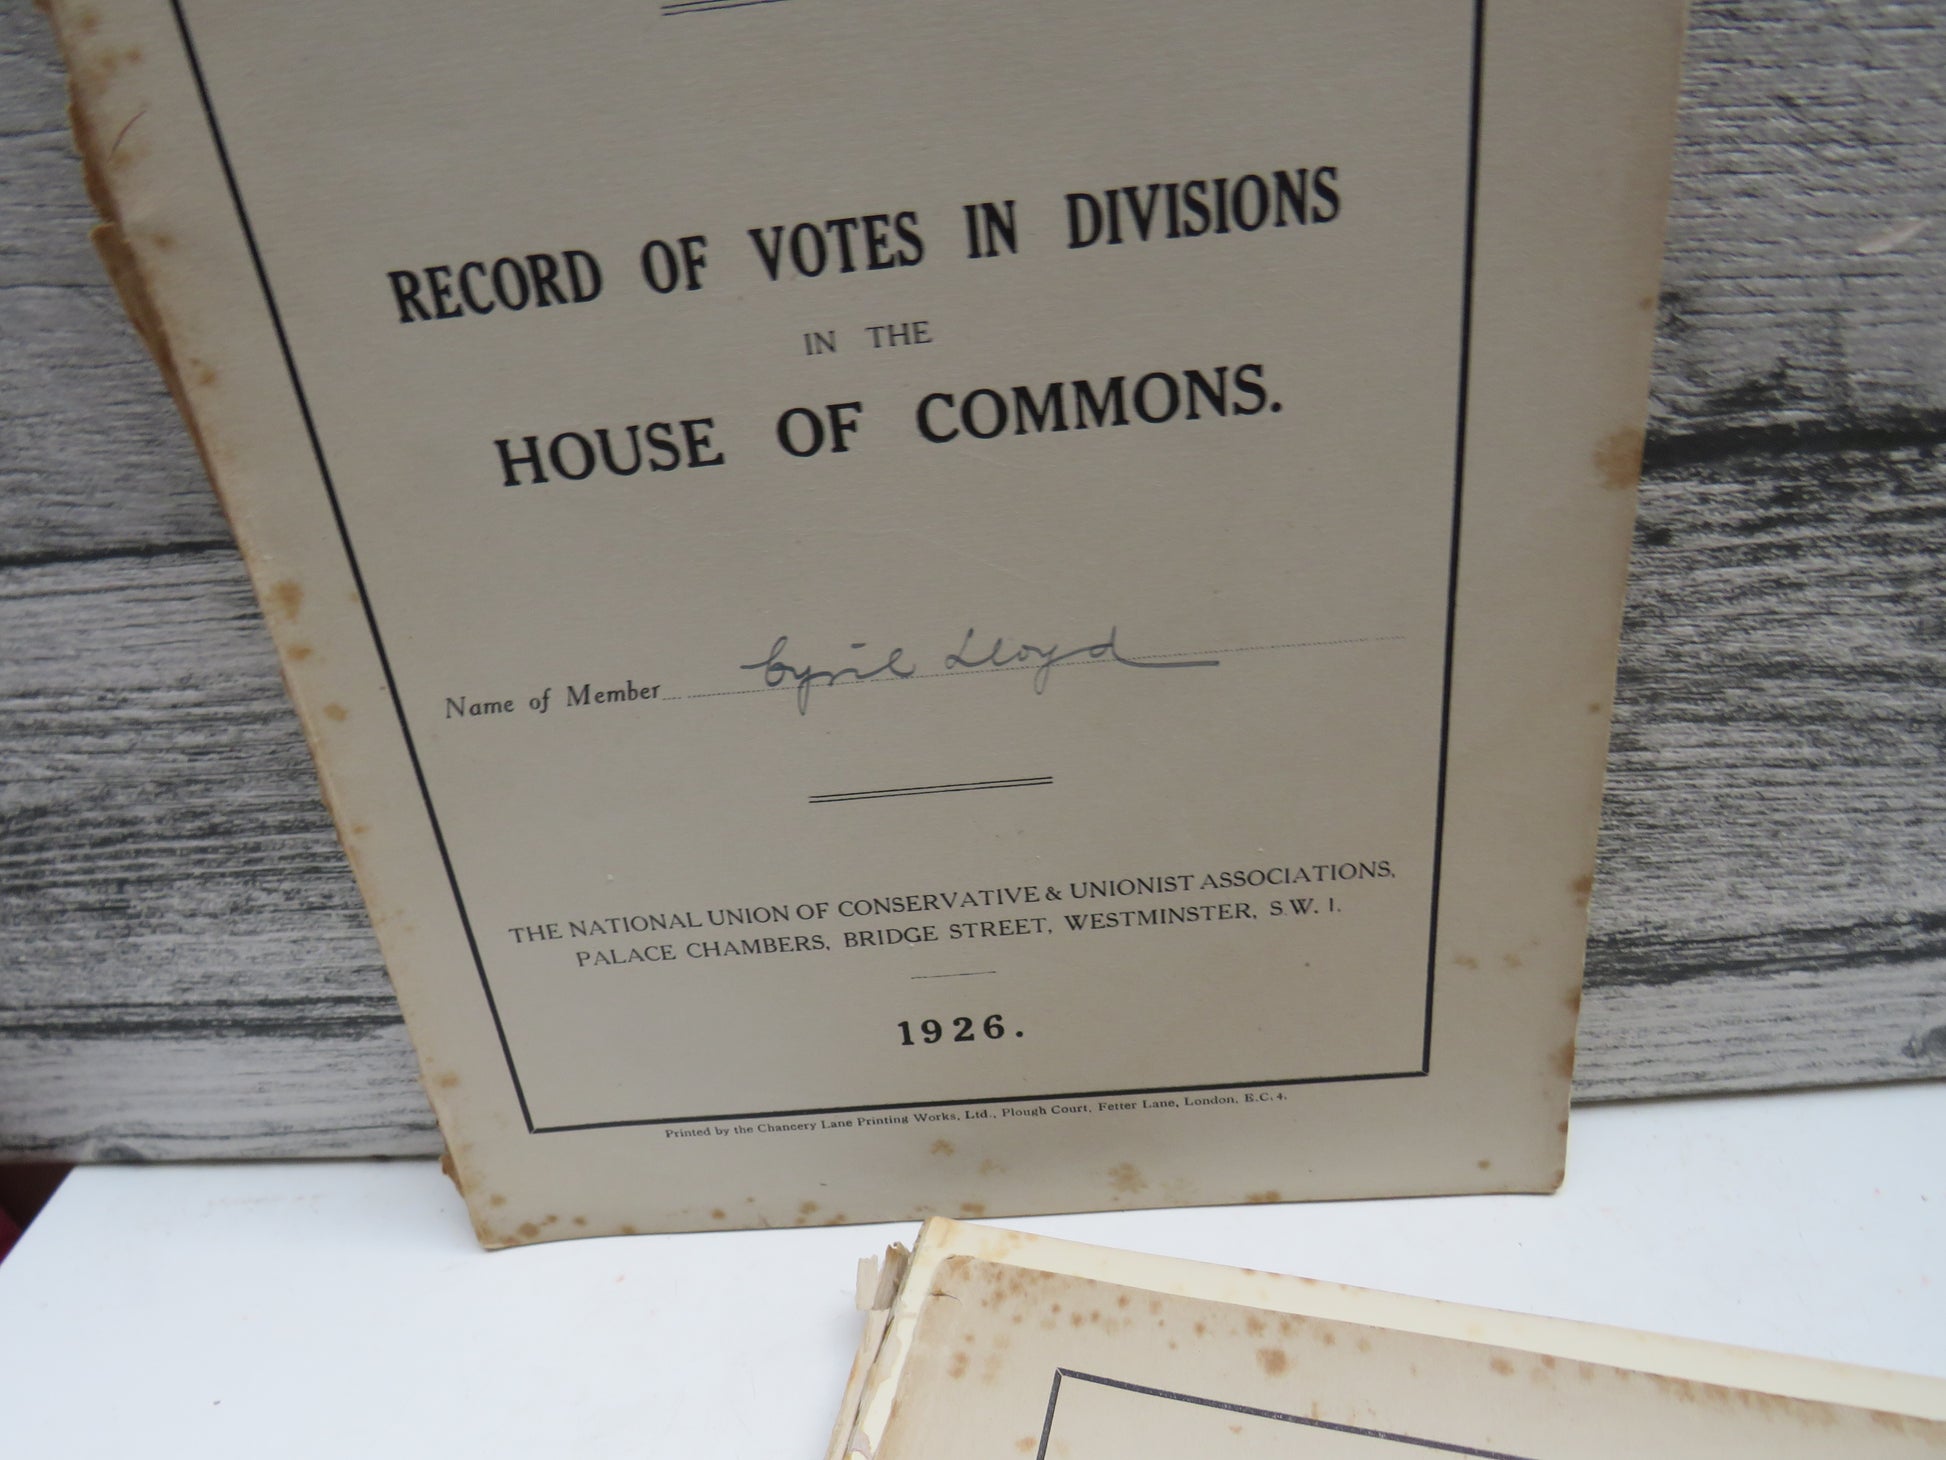 RECORD OF VOTES IN DIVISIONS
IN THE
HOUSE OF COMMONS.
Name of Member Cyril Lloyd
THE NATIONAL UNION OF CONSERVATIVE & UNIONIST ASSOCIATIONS,
PALACE CHAMBERS, BRIDGE STREET, WESTMINSTER, S.W. 1.
1926.
Printed by the Chancery Lane Printing Works, Ltd., Plough Court, Fetter Lane, London, E.C. 4.